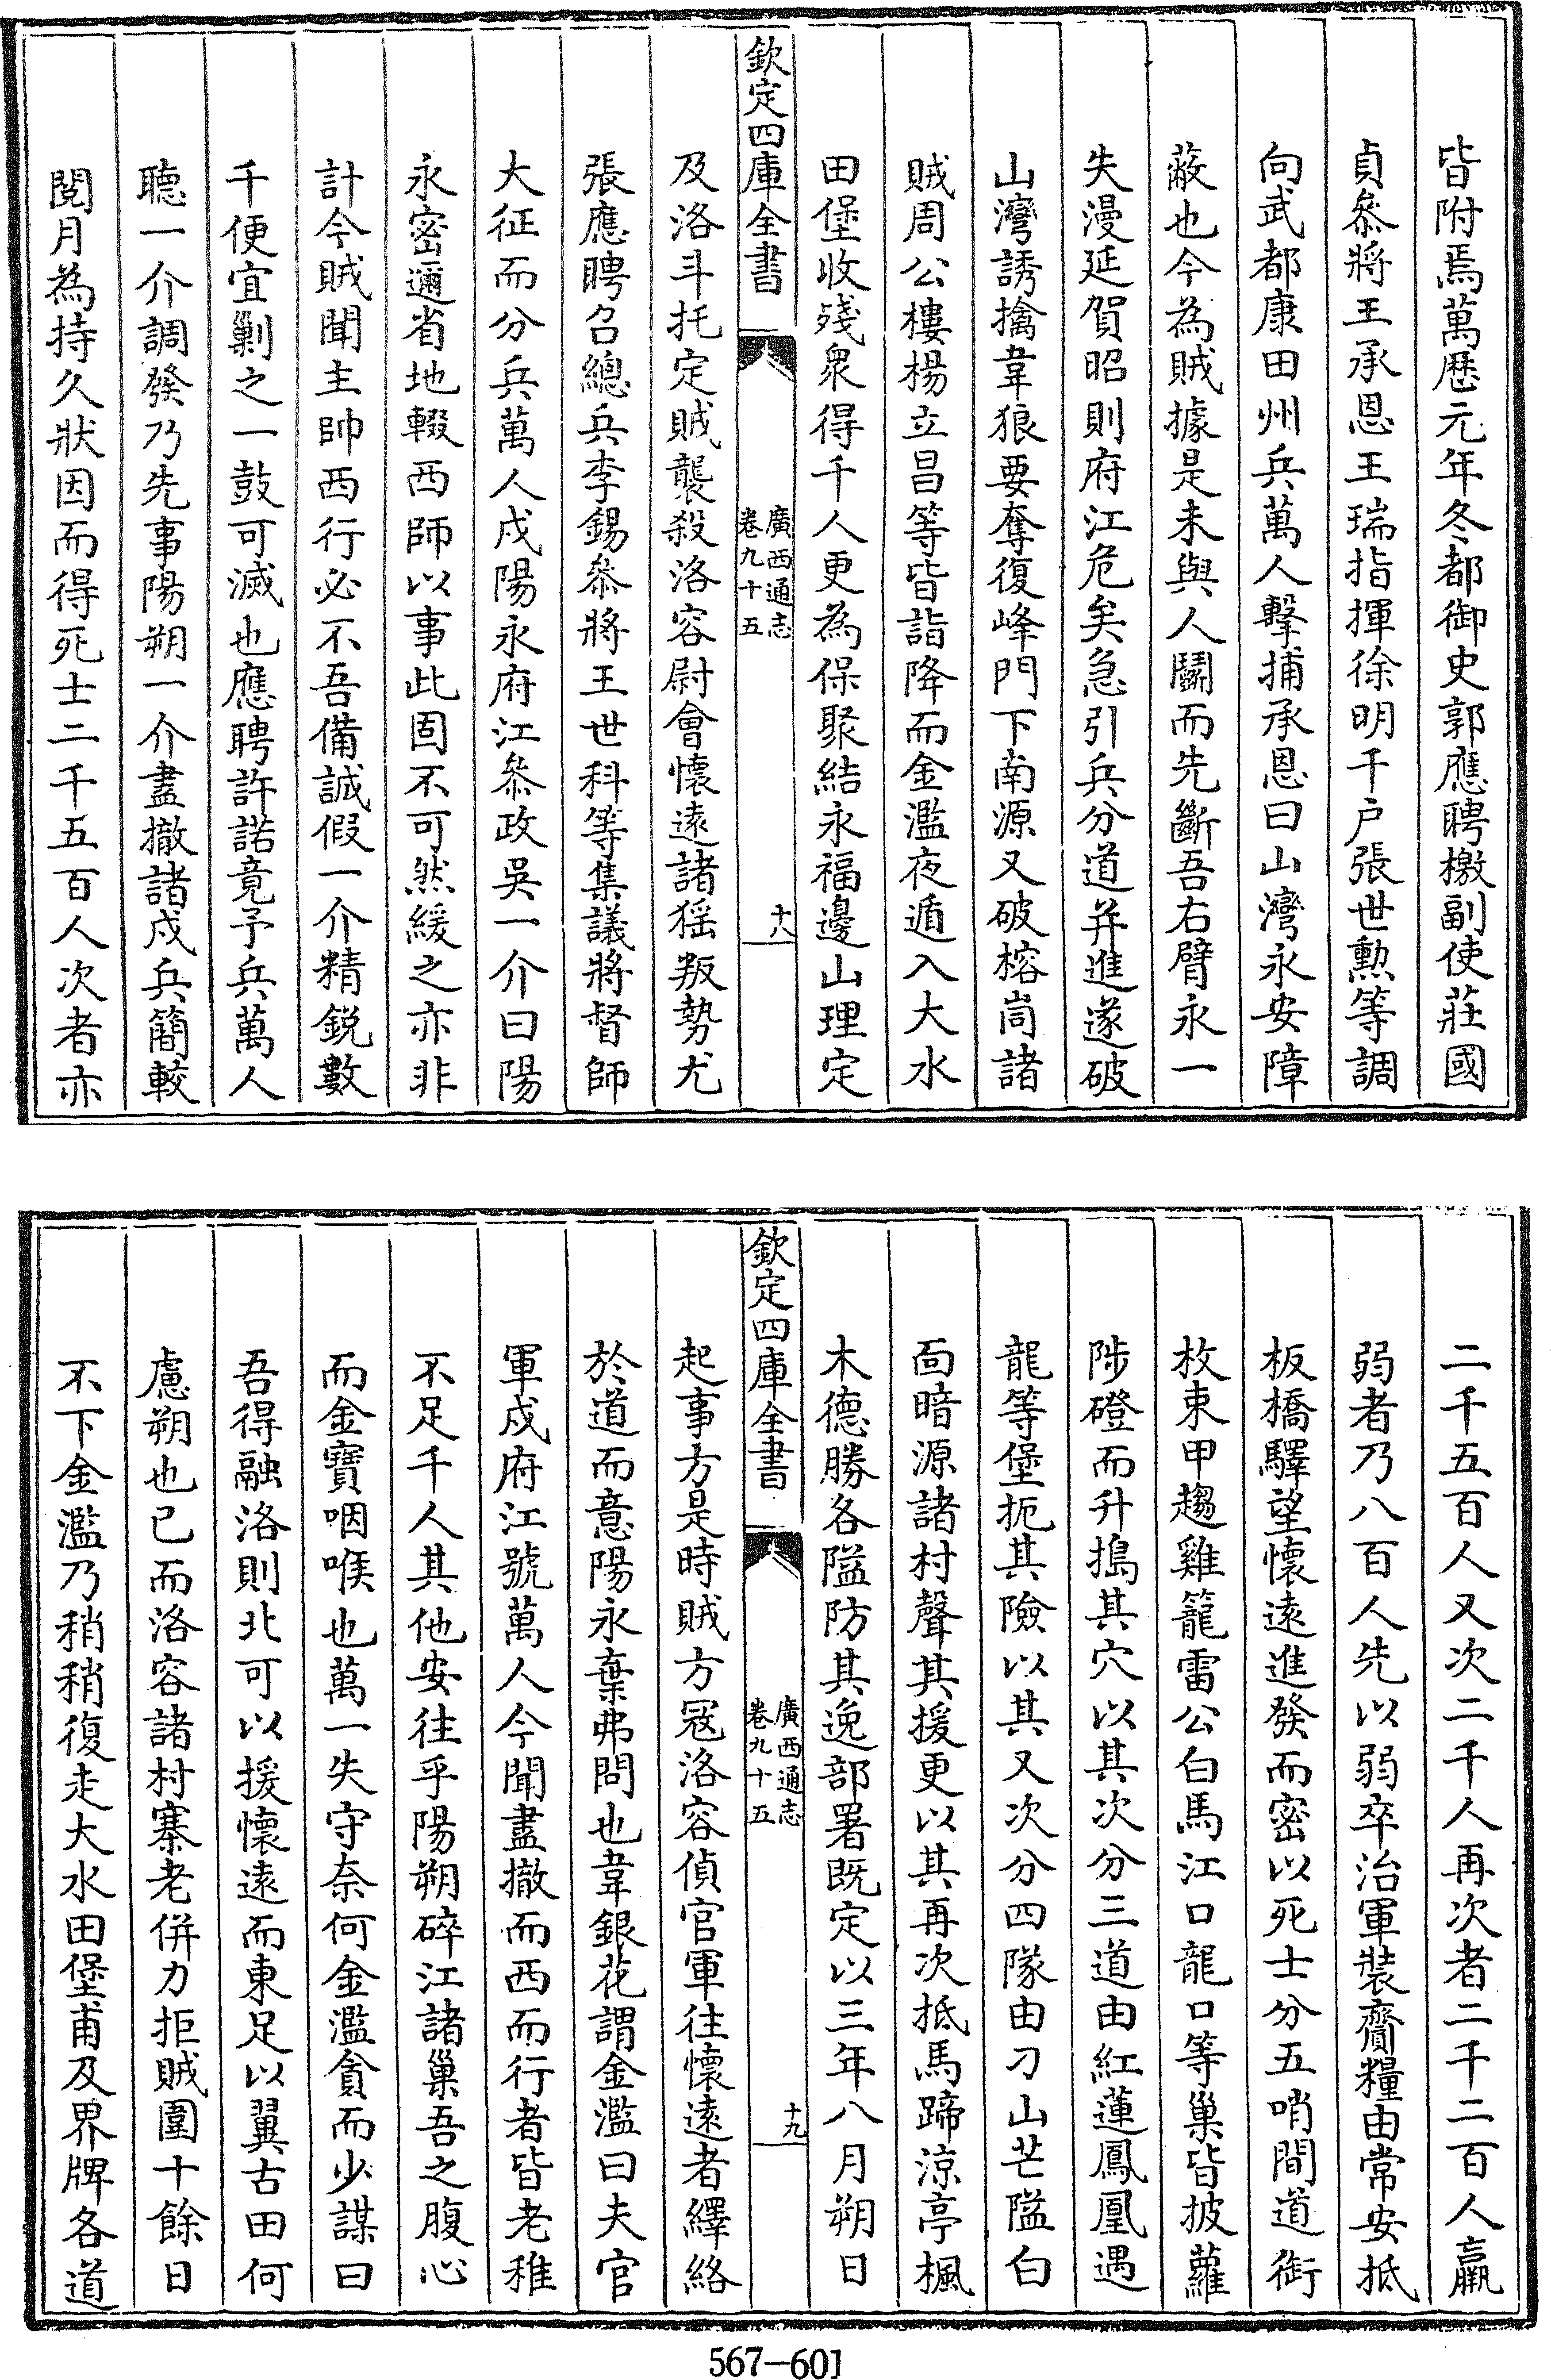 皆附焉萬歷元年冬都御史郭應聘檄副使莊國
貞叅將王承恩王瑞指揮徐明千户張世勲等調
向武都康田州兵萬人擊捕承恩曰山灣永安障
蔽也今為賊據是未與人鬭而先斷吾右臂永一
失漫延賀昭則府江危矣急引兵分道并進遂破
山灣誘擒韋狼要奪復峰門下南源又破榕峝諸
賊周公樓楊立昌等皆詣降而金濫夜遁入大水
田堡收殘衆得千人更為保聚結永福邊山理定
欽定四庫全書
廣西通志
卷九十五
十八
及洛斗托定賊襲殺洛容尉會懷遠諸猺叛勢尤
張應聘召總兵李錫叅將王世科等集議將督師
大征而分兵萬人戍陽永府江叅政吳一介曰陽
永密邇省地輟西師以事此固不可然緩之亦非
計今賊聞主帥西行必不吾備誠假一介精鋭數
千便宜剿之一鼓可滅也應聘許諾竟予兵萬人
聽一介調發乃先事陽朔一介盡撤諸戍兵簡較
閲月為持久狀因而得死士二千五百人次者亦
二千五百人又次二千人再次者二千二百人羸
弱者乃八百人先以弱卒治軍裝齎糧由常安抵
板橋驛望懷遠進發而密以死士分五哨間道銜
枚束甲趨雞籠雷公白馬江口龍口等巢皆披蘿
陟磴而升搗其穴以其次分三道由紅蓮鳳凰遇
龍等堡扼其險以其又次分四隊由刀山芒隘白
面暗源諸村聲其援更以其再次抵馬蹄涼亭楓
木德勝各隘防其逸部署既定以三年八月朔日
欽定四庫全書
廣西通志
卷九十五
十九
起事方是時賊方冦洛容偵官軍往懷遠者繹絡
於道而意陽永棄弗問也韋銀花謂金濫曰夫官
軍戍府江號萬人今聞盡撤而西而行者皆老稚
不足千人其他安往乎陽朔碎江諸巢吾之腹心
而金寶咽喉也萬一失守奈何金濫貪而少謀曰
吾得融洛則北可以援懷遠而東足以翼古田何
慮朔也已而洛容諸村寨老併力拒賊圍十餘日
不下金濫乃稍稍復走大水田堡甫及界牌各道
567—601